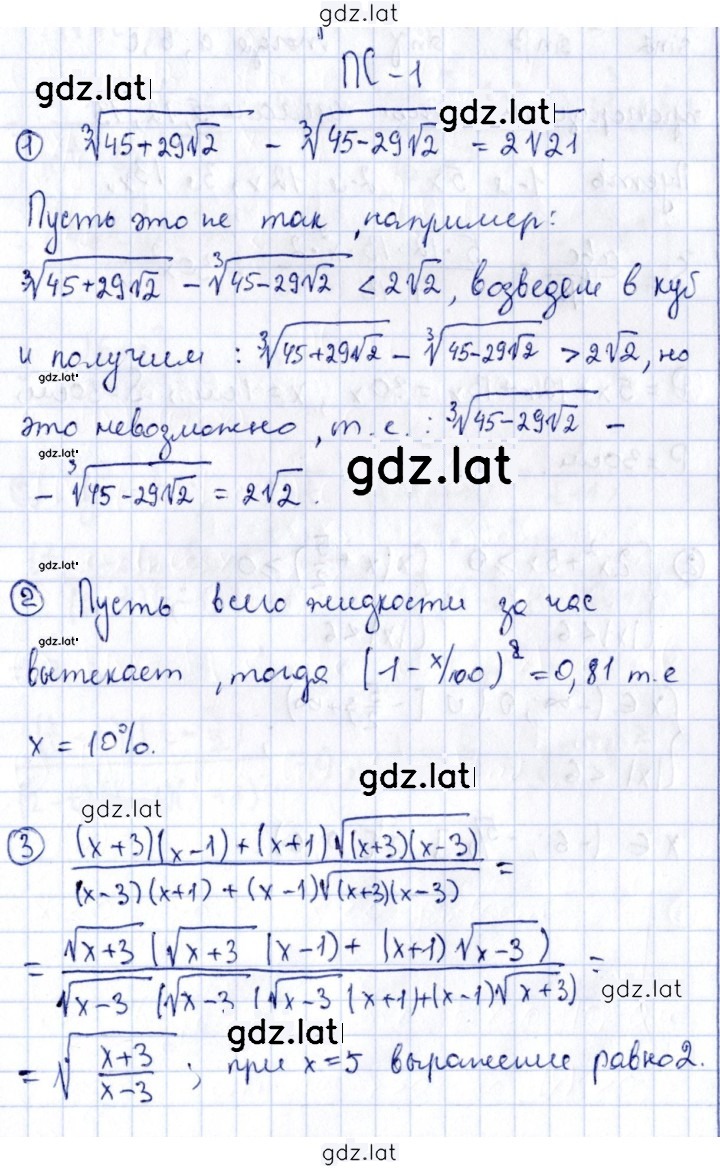 gdz.lat
ПС-1
gdz.lat
gdz.lat
① ∛(45+29√2) - ∛(45-29√2) = 2√21
Пусть это не так, например:
∛(45+29√2) - ∛(45-29√2) < 2√2, возведем в куб
и получим: ∛(45+29√2) - ∛(45-29√2) > 2√2, но
gdz.lat
это невозможно, т.е.: ∛(45-29√2) -
gdz.lat
gdz.lat
- ∛(45-29√2) = 2√2.
gdz.lat
② Пусть всего жидкости за час
gdz.lat
вытекает, тогда (1-x/100)² = 0,81 т.е
x = 10%.
gdz.lat
gdz.lat
③ ((x+3)(x-1)+(x+1)√((x+3)(x-3))) / ((x-3)(x+1)+(x-1)√((x+3)(x-3))) =
= (√(x+3) (√(x+3) (x-1)+(x+1)√(x-3))) / (√(x-3) (√(x-3) (√(x-3) (x+1)+(x-1)√(x+3))) =
gdz.lat
gdz.lat
= √((x+3)/(x-3)); при x=5 выражение равно 2.
gdz.lat